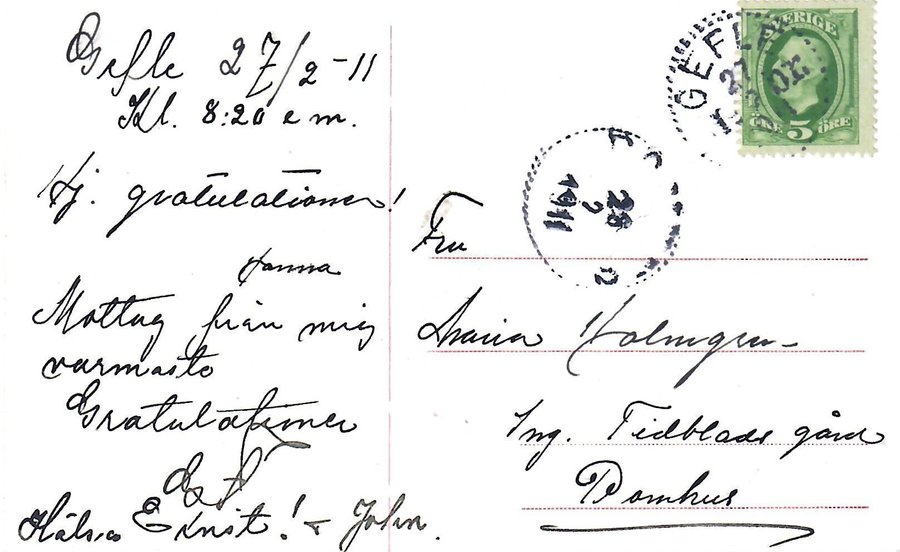 Gefle 27/2-11
Kl. 8:20 e m.
Hj. gratulationer!
Hanna
Mottag från mig
varmaste
Gratulationer
Hälsa Ernst! + John.
SVERIGE
5
ÖRE ÖRE
GEFLE
27
26
2
1911
Fru
Maria Holmgren
Ing. Tidblads gård
Bomhus